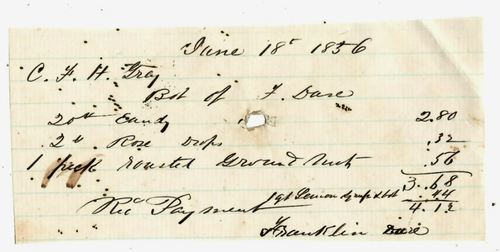 June 18th 1856
C. F. H. Gray
Bot of F. Dase
20 lb Candy 2.80
2 lb Rose Drops .32
1 peck roasted Ground Nuts .56
3.68
1 qt Lemon Syrup & bot 44
Rec Payment 4.12
Franklin Dase